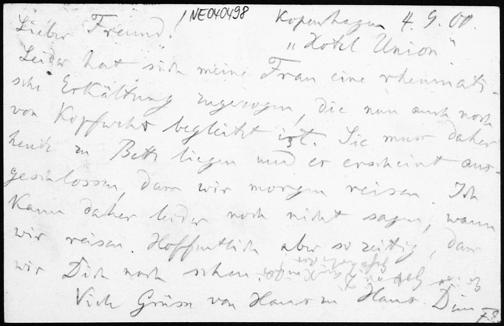 NE040498
Kopenhagen 4.9.00
Lieber Freund!
"Hotel Union".
Leider hat sich meine Frau eine rheumati-
sche Erkältung zugezogen, die nun auch noch
von Kopfweh begleitet ist. Sie muss daher
heute zu Bett liegen und es erscheint aus-
geschlossen, dass wir morgen reisen. Ich
kann daher leider noch nicht sagen, wann
wir reisen. Hoffentlich aber so zeitig, dass
wir Dich noch sehen.
Viele Grüsse von Haus zu Haus. Dein